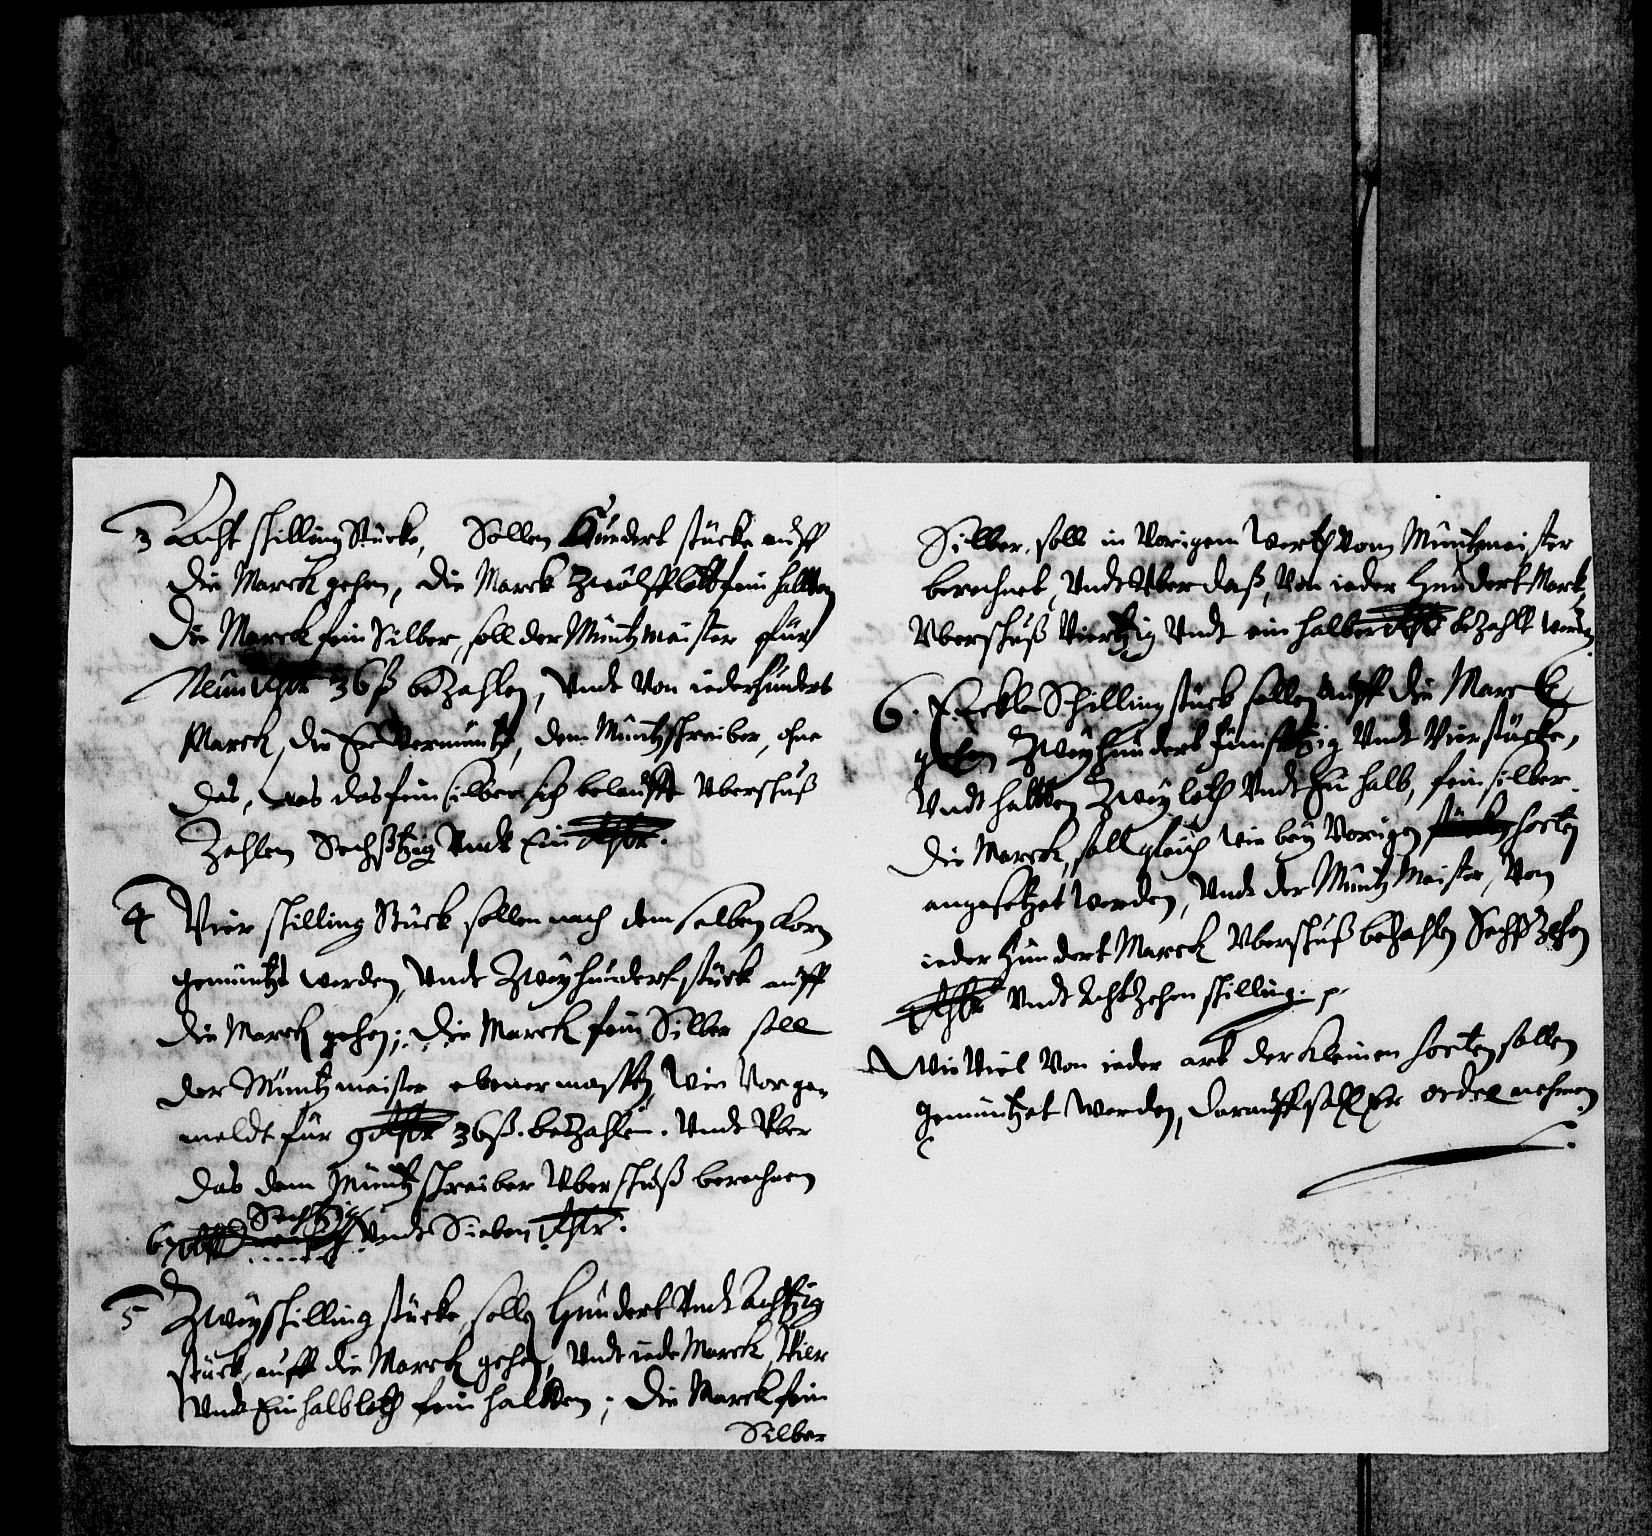 3 Acht schilling Stücke, Sollen Hundert stücke auff
die Marck gehen, die Marck Zwölff lott fein haltten
Die Marck fein Silber, soll der Müntzmeister für
Neun Rthlr 36 ß beZahlen, Vndt Von ieder hundert
Marck, die Er Vermüntzt, dem Müntzschreiber, ohne
das, was das fein silber sich belaufft Vberschuß
Zahlen Sechßtzig Vndt Ein Rthlr.
4 Vier schilling Stück sollen nach dem selben Korn
gemüntzt werden, Vndt Zweyhundert stück auff
die Marck gehen; Die Marck fein Silber soll
der Müntzmeister ebener massen, wie Vorge-
meldt für 9 Rthlr 36 ß. beZahlen. Vndt Vber
das dem Müntzschreiber Vberschuß berechnen
Sechtzig
67 Vndt Sieben Rthlr.
5 Zweyschilling stücke, sollen Hundert Vndt Achtzig
stück, auff die Marck gehen, Vndt iede Marck, Vier
Vndt Ein halb loth fein haltten; Die Marck fein
Silber
Silber, soll in Vorigem Werth Vom Müntzmeister
berechnet, Vndt Vber daß, Von ieder Hundert Marck,
Vberschuß Viertzig Vndt ein halber Rthlr beZahlt werden
6. Schilling stück sollen auff die Marck
gehen Zweyhundert fünfftzig Vndt Vier stücke,
Vndt haltten Zwey loth Vndt Ein halb, fein silber.
Die Marck, soll gleich wie bey Vorigen sorten
angesetzet werden, Vndt der Müntz Meister, Von
ieder Hundert Marck Vberschuß beZahlen SechßZehen
Rthlr Vndt AchtZehen schilling.
Wie Viel Von ieder art der Kleinen sorten sollen
gemüntzet werden, darauff soll Er order nehmen.